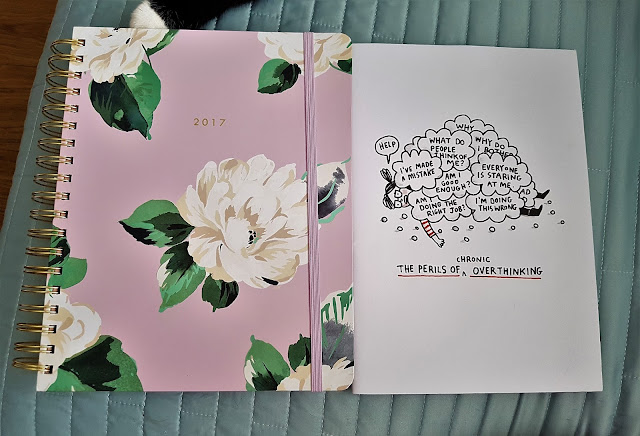 2017
HELP
WHY
WHAT DO
PEOPLE
THINK OF
ME?
WHY DO
I BOTHER
I'VE MADE
A MISTAKE
AM I
GOOD
ENOUGH?
EVERYONE
IS STARING
AT ME
AM I
DOING THE
RIGHT JOB?
I'M DOING
THIS WRONG
CHRONIC
THE PERILS OF OVERTHINKING